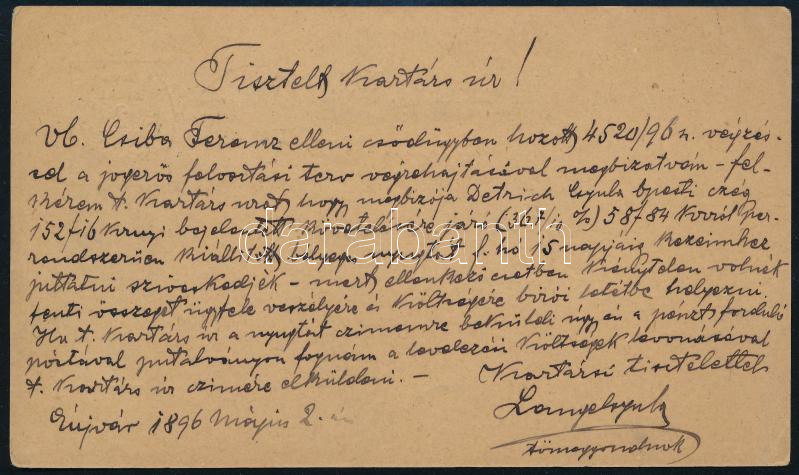 Tisztelt Kartárs úr!
Vb. Csiba Ferencz elleni csődügyben hozott 4520/96 sz. végzés-
sel a jogerős felosztási terv végrehajtásával megbizatván – fel-
kérem t. Kartárs urat, hogy megbizója Detrich Gyula bpesti czég
152 f 16 krnyi bejelentett követelésére járó (       %) 58 f 84 krról
rendszerüen kiállitott bélyeges nyugtát f. hó 15 napjáig kezeimhez
juttatni sziveskedjék – mert ellenkező esetben kénytelen volnék
fenti összeget ügyfele veszélyére és költségére birói letétbe helyezni
Ha t. Kartárs úr a nyugtát czimemre beküldi ugy én a pénzt forduló
póstával utalványon fognám a levelezési költségek levonásával
t. Kartárs úr czimére elküldeni. –
Kartársi tisztelettel
Érújvár 1896 Május 2.-án
tömeggondnok
darabanth